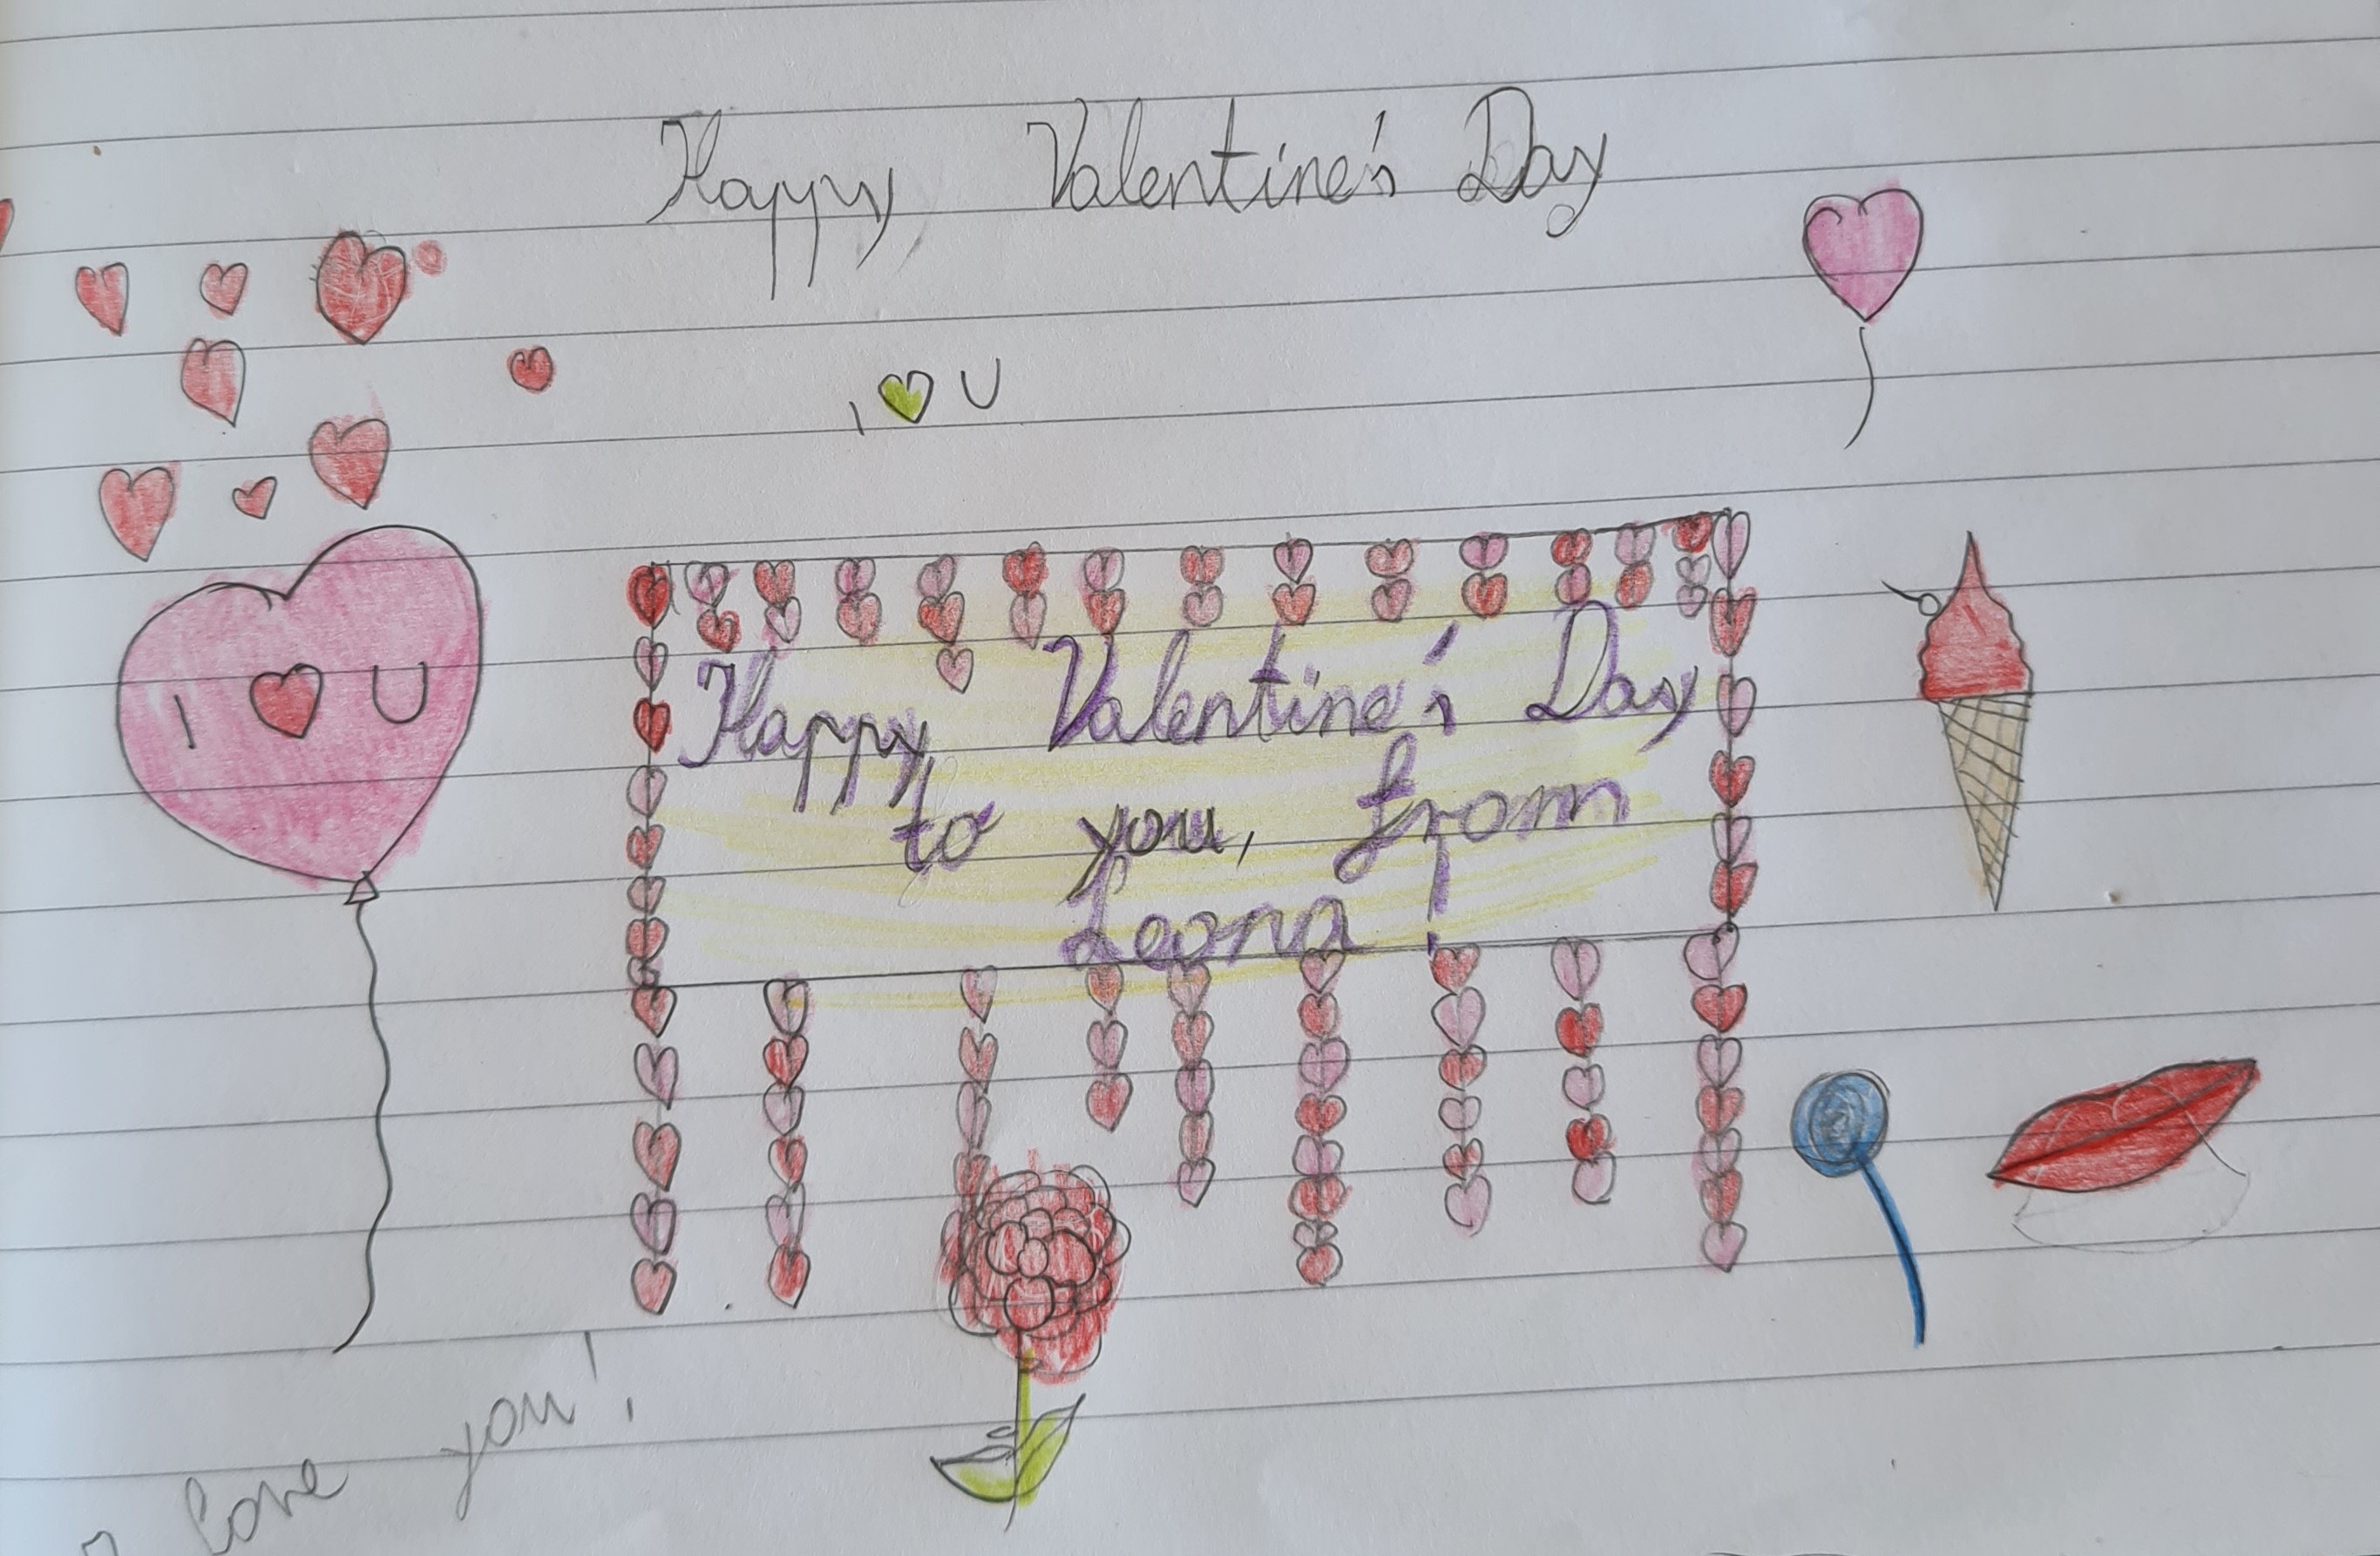 Happy Valentine's Day
I ♥ U
I ♥ U
Happy Valentine's Day
to you, from
Leona!
I love you!